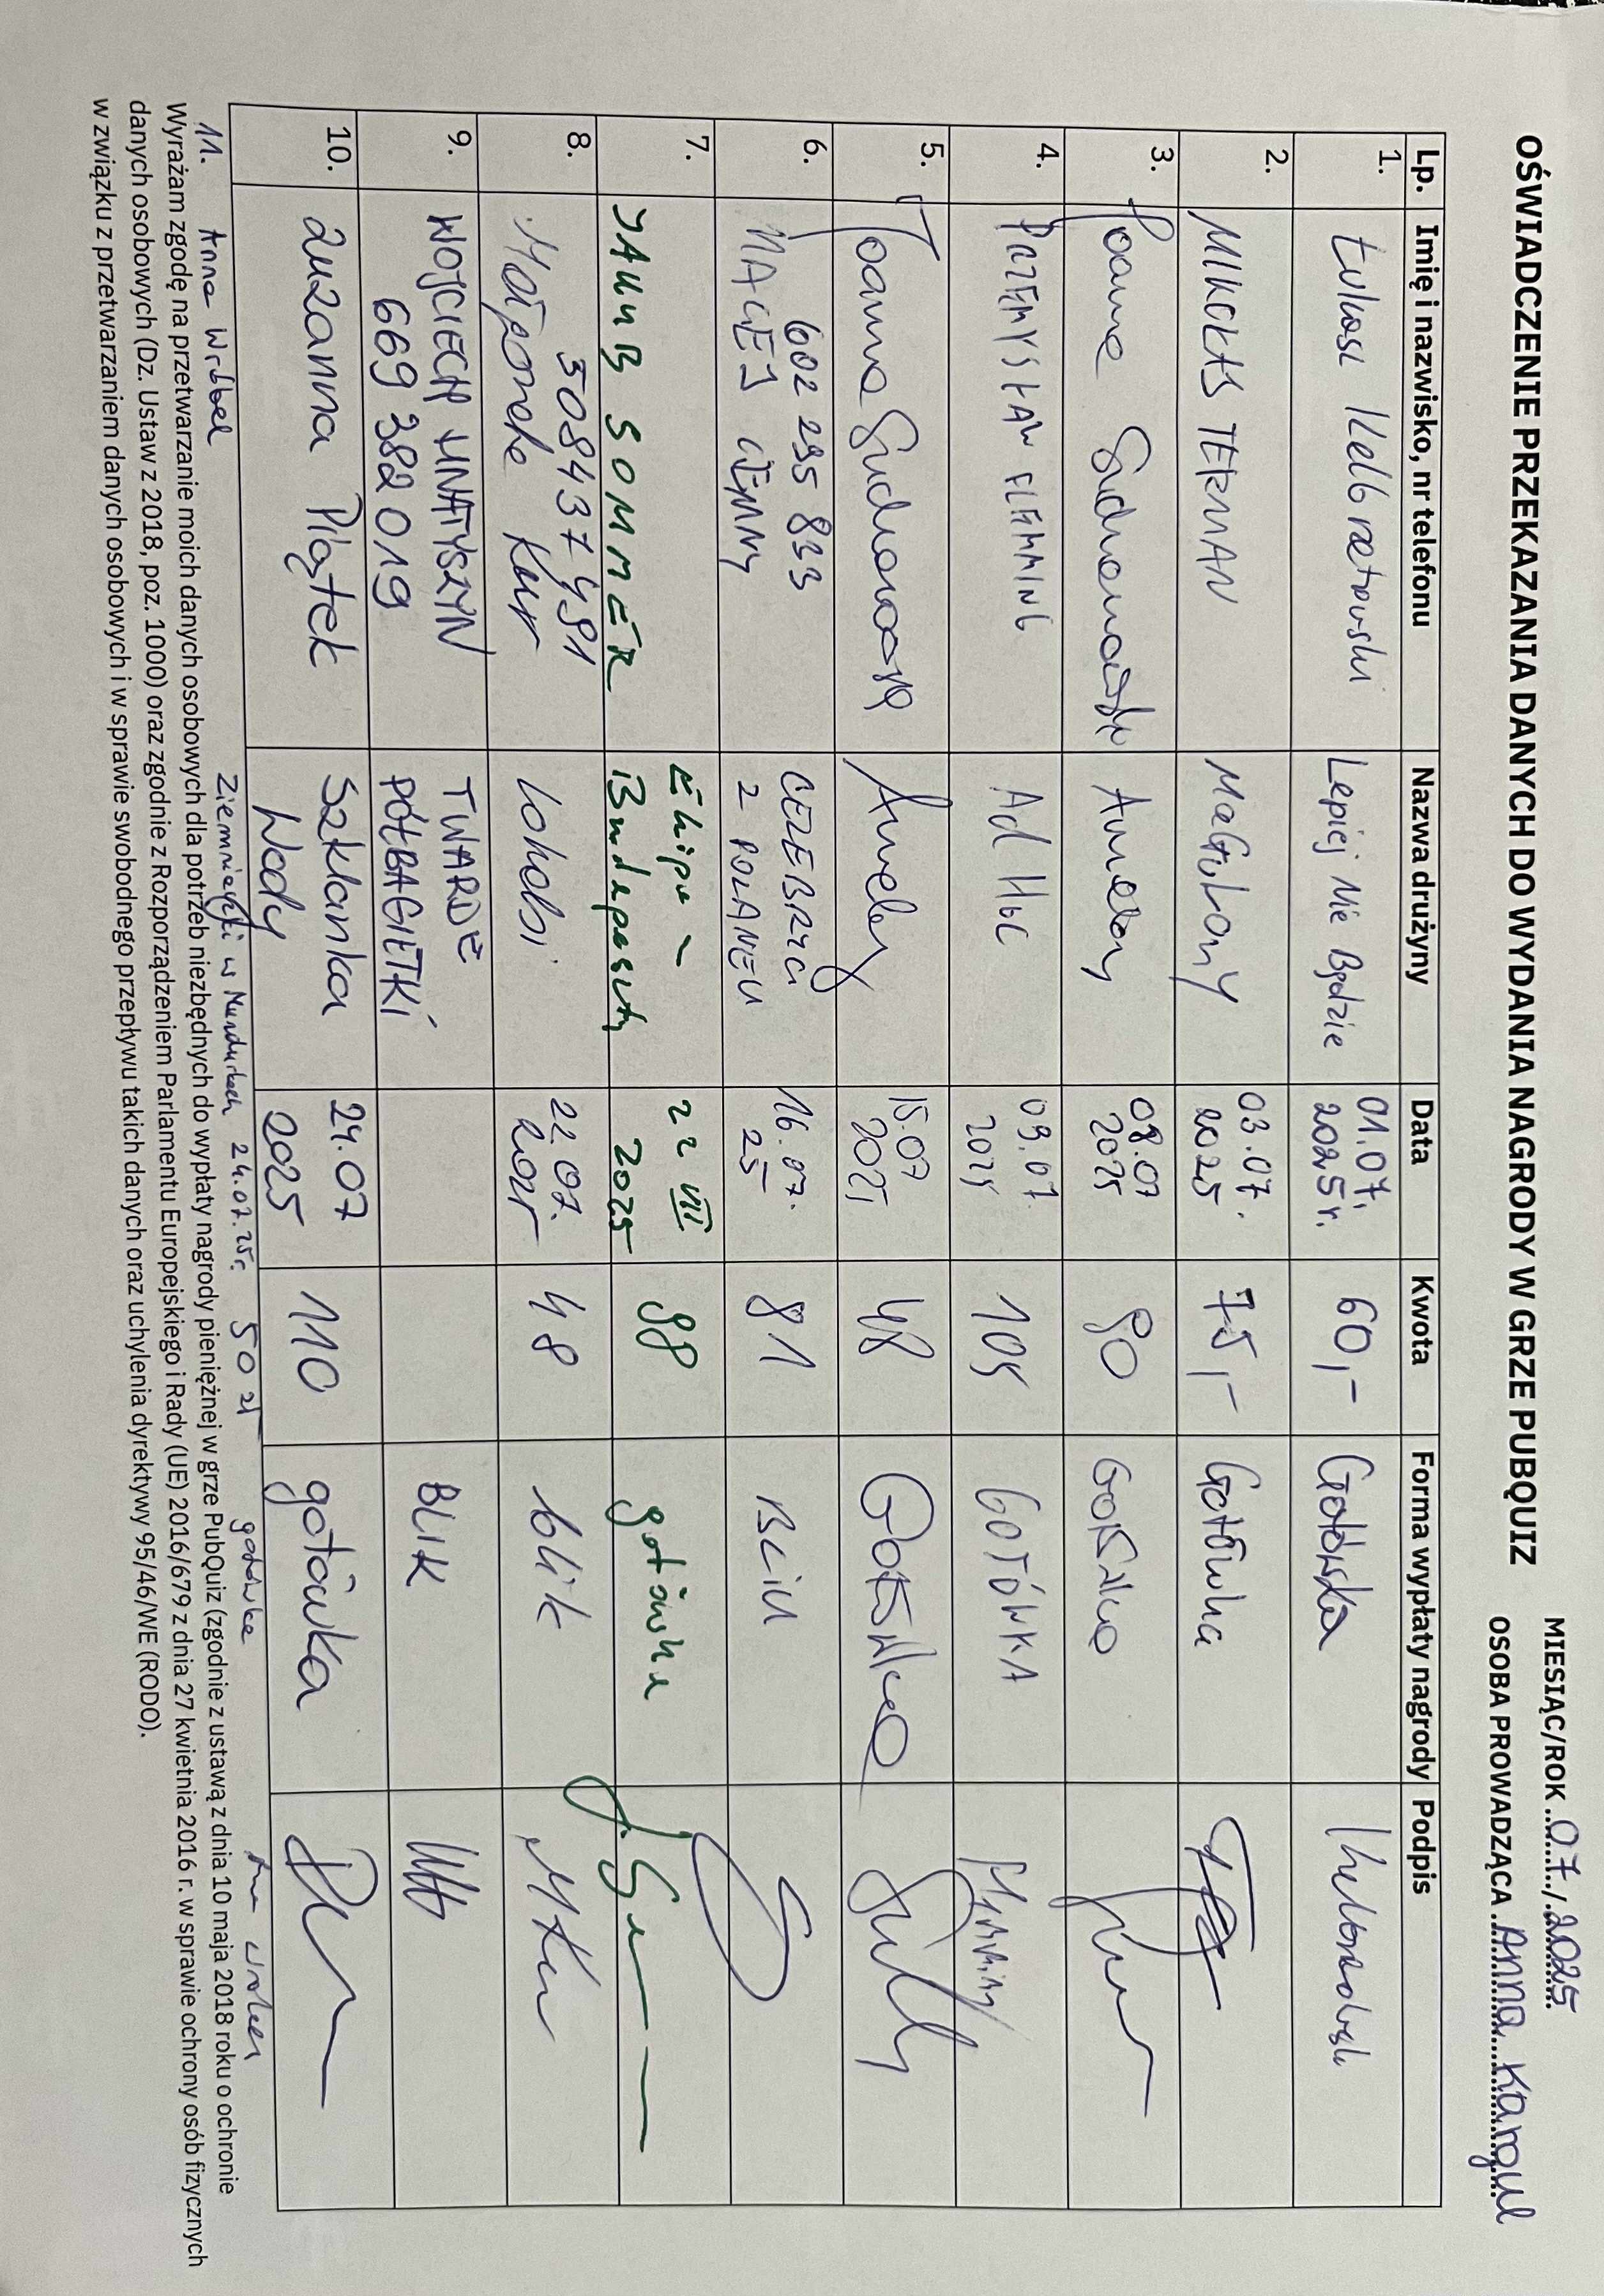 OŚWIADCZENIE PRZEKAZANIA DANYCH DO WYDANIA NAGRODY W GRZE PUBQUIZ
MIESIĄC/ROK 07/2025
OSOBA PROWADZĄCA Anna Kargul
Lp. Imię i nazwisko, nr telefonu Nazwa drużyny Data Kwota Forma wypłaty nagrody Podpis
1. Łukasz Lepiej Nie Będzie 01.07. 2025r. 60,- Gotówka
2. MIKOŁAJ TERMAN MaGiLony 03.07. 2025 75,- Gotówka
3. Joanna Ameby 08.07 2025 90 Gotówka
4. PRZEMYSŁAW FLEMMING Ad Hoc 09.07. 2025 105 GOTÓWKA Flemming
5. Joanna Ameby 15.07 2025 48 Gotówka
6. 602 295 833
MACIEJ CIEMNY CELEBRYCI Z POLANEU 16.07. 25 81 BLIK
7. JAKUB SOMMER Ekipa z Budapesztu 22 VII 2025 98 gotówka
8. 508437491
Małgorzata Kur lokobi 22.07. 2025r 48 blik MKur
9. WOJCIECH HNATYSZYN
669 382 019 TWARDE PÓŁBAGIETKI BLIK
10. Zuzanna Piątek Szklanka Wody 24.07 2025 110 gotówka
11. Anna Wróbel Ziemniaczki w Mundurkach 24.07.25r. 50 zł gotówka
Wyrażam zgodę na przetwarzanie moich danych osobowych dla potrzeb niezbędnych do wypłaty nagrody pieniężnej w grze PubQuiz (zgodnie z ustawą z dnia 10 maja 2018 roku o ochronie
danych osobowych (Dz. Ustaw z 2018, poz. 1000) oraz zgodnie z Rozporządzeniem Parlamentu Europejskiego i Rady (UE) 2016/679 z dnia 27 kwietnia 2016 r. w sprawie ochrony osób fizycznych
w związku z przetwarzaniem danych osobowych i w sprawie swobodnego przepływu takich danych oraz uchylenia dyrektywy 95/46/WE (RODO).